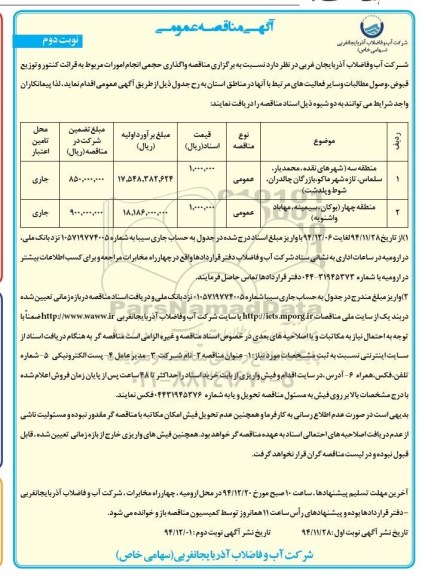 آگهی مناقصه عمومی
نوبت دوم
شرکت آب و فاضلاب آذربایجانغربی
(سهامی خاص)
شرکت آب وفاضلاب آذربایجان غربی در نظر دارد نسبت به برگزاری مناقصه واگذاری حجمی انجام امورات مربوط به قرائت کنتور و توزیع
قبوض، وصول مطالبات وسایر فعالیت های مرتبط با آنها در مناطق استان به رح جدول ذیل از طریق آگهی عمومی اقدام نماید، لذا پیمانکاران
واجد شرایط می توانند به دو شیوه ذیل اسناد مناقصه را دریافت نمایند:
ردیف
موضوع
نوع مناقصه
قیمت اسناد(ریال)
مبلغ برآورد اولیه (ریال)
مبلغ تضمین شرکت در مناقصه (ریال)
محل تامین اعتبار
۱
منطقه سه (شهرهای نقده، محمدیار،
سلماس، تازه شهر ماکو، بازرگان چالدران،
شوط و پلدشت)
عمومی
۱,۰۰۰,۰۰۰
۱۷,۵۴۸,۳۸۲,۶۲۴
۸۵۰,۰۰۰,۰۰۰
جاری
۲
منطقه چهار (بوکان، سیمینه، مهاباد
واشنویه)
عمومی
۱,۰۰۰,۰۰۰
۱۸,۱۸۶,۰۰۰,۰۰۰
۹۰۰,۰۰۰,۰۰۰
جاری
۱)از تاریخ ۹۴/۱۱/۲۸ لغایت ۹۴/۱۲/۰۶ با واریز مبلغ اسناد درج شده در جدول به حساب جاری سیبا به شماره ۰۱۰۵۷۱۹۷۷۴۰۰۵ نزد بانک ملی،
در ارومیه در ساعات اداری به نشانی ستاد شرکت آب و فاضلاب دفتر قراردادها واقع در چهارراه مخابرات مراجعه و برای کسب اطلاعات بیشتر
در ارومیه با شماره ۳۱۹۴۵۳۷۳-۰۴۴ دفتر قراردادها تماس حاصل فرمایند.
۲)واریز مبلغ مندرج در جدول به حساب جاری سیبا شماره ۰۱۰۵۷۱۹۷۷۴۰۰۵ نزد بانک ملی و دریافت اسناد مناقصه در بازه زمانی تعیین شده
در بند یک از سایت ملی مناقصات http://iets.mporg.ir یا سایت شرکت آب و فاضلاب آذربایجانغربی http://www.waww.ir ضمنا با
توجه به احتمال نیاز به مکاتبات و یا اصلاحیه های بعدی در خصوص اسناد مناقصه و غیره الزامی است مناقصه گر به هنگام دریافت اسناد از
سایت اینترنتی نسبت به ثبت مشخصات مورد نیاز: ۱- عنوان مناقصه ۲- نام شرکت ۳- مدیرعامل ۴- پست الکترونیکی ۵- شماره
تلفن، فکس، همراه ۶- آدرس، در سایت اقدام و فیش واریزی از بابت خرید اسناد را حداکثر تا ۴۸ ساعت پس از پایان زمان فروش اعلام شده
با درج مشخصات بالا بر روی فیش به مسئول مناقصه تحویل و یا به شماره ۰۴۴۳۱۹۴۵۳۷۶ فکس نمایند.
بدیهی است در صورت عدم اطلاع رسانی به کارفرما و همچنین عدم تحویل فیش امکان مکاتبه با مناقصه گر مقدور نبوده و مسئولیت ناشی
از عدم دریافت اصلاحیه های احتمالی اسناد به عهده مناقصه گر خواهد بود. همچنین فیش های واریزی خارج از بازه زمانی تعیین شده، قابل
قبول نبوده و در لیست مناقصه گران قرار نخواهد گرفت.
آخرین مهلت تسلیم پیشنهادها، ساعت ۱۰ صبح مورخ ۹۴/۱۲/۲۰ در محل ارومیه، چهارراه مخابرات، شرکت آب و فاضلاب آذربایجانغربی
-دفتر قراردادها بوده و پیشنهادهای رأس ساعت ۱۱ همانروز توسط کمیسیون مناقصه باز و خوانده می شود.
تاریخ نشر آگهی نوبت اول: ۹۴/۱۱/۲۸ تاریخ نشر آگهی نوبت دوم: ۹۴/۱۲/۰۱
شرکت آب و فاضلاب آذربایجانغربی(سهامی خاص)